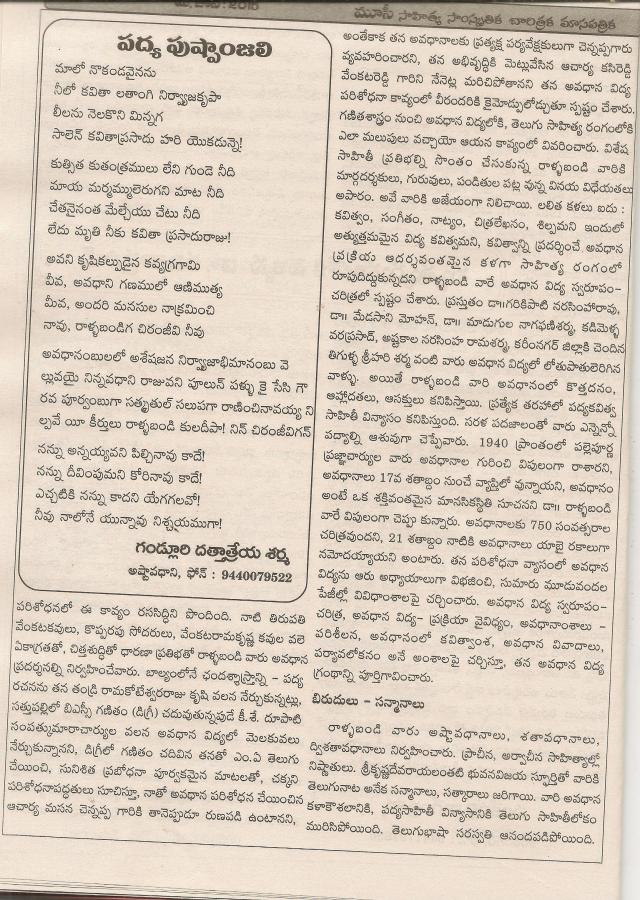 మూసీ సాహిత్య సాంస్కృతిక చారిత్రక మాసపత్రిక
పద్య పుష్పాంజలి
మాలో నొకండవైనను
నీలో కవితా లతాంగి నిర్వ్యాజకృపా
లీలను నెలకొని మిన్నగ
సాలెన్ కవితాప్రసాదు హరి యొకడున్నె!
కుత్సిత కుతంత్రములు లేని గుండె నీది
మాయ మర్మమ్ములెరుగని మాట నీది
చేతనైనంత మేల్చేయు చేటు నీది
లేదు మృతి నీకు కవితా ప్రసాదురాజు!
అవని కృషికల్పుడైన కవ్యగ్రగామి
వీవ, అవధాని గణములో ఆణిముత్య
మీవ, అందరి మనసుల నాక్రమించి
నావు, రాళ్ళబండిగ చిరంజీవి నీవు
అవధానంబులలో అశేషజన నిర్వ్యాజాభిమానంబు వె
ల్లువయై నిన్నవధాని రాజువని పూలున్ పళ్ళు కై సేసి గౌ
రవ పూర్వంబుగా సత్కృతుల్ సలుపగా రాణించినావయ్య ని
ల్పవే యీ కీర్తులు రాళ్ళబండి కులదీపా! నిన్ చిరంజీవిగన్
నన్ను అన్నయ్యవని పిల్చినావు కాదే!
నన్ను దీవింపుమని కోరినావు కాదే!
ఎచ్చటికి నన్ను కాదని యేగగలవో!
నీవు నాలోనే యున్నావు నిశ్చయముగా!
గండ్లూరి దత్తాత్రేయ శర్మ
అష్టావధాని, ఫోన్ : 9440079522
పరిశోధనలో ఈ కావ్యం రససిద్ధిని పొందింది. నాటి తిరుపతి
వేంకటకవులు, కొప్పరపు సోదరులు, వేంకటరామకృష్ణ కవుల వలె
ఏకాగ్రతతో, చిత్తశుద్ధితో ధారణా ప్రతిభతో రాళ్ళబండి వారు అవధాన
ప్రదర్శనల్ని నిర్వహించేవారు. బాల్యంలోనే ఛందశ్శాస్త్రాన్ని - పద్య
రచనను తన తండ్రి రామకోటేశ్వరరాజు కృషి వలన నేర్చుకున్నట్లు,
సత్తుపల్లిలో బిఎస్సీ గణితం (డిగ్రీ) చదువుతున్నపుడే కీ.శే. దూపాటి
సంపత్కుమారాచార్యుల వలన అవధాన విద్యలో మెలకువలు
నేర్చుకున్నానని, డిగ్రీలో గణితం చదివిన తనతో ఎం.ఏ తెలుగు
చేయించి, సునిశిత ప్రబోధనా పూర్వకమైన మాటలతో, చక్కని
పరిశోధనాపద్ధతులు సూచిస్తూ, నాతో అవధాన పరిశోధన చేయించిన
ఆచార్య మసన చెన్నప్ప గారికి తానెప్పుడూ రుణపడి ఉంటానని,
అంతేకాక తన అవధానాలకు ప్రత్యక్ష పర్యవేక్షకులుగా చెన్నప్పగారు
వ్యవహరించారని, తన అభివృద్ధికి మెట్లువేసిన ఆచార్య కసిరెడ్డి
వేంకటరెడ్డి గారిని నేనెట్ల మరిచిపోతానని తన అవధాన విద్య
పరిశోధనా కావ్యంలో వీరందరికి కైమోడ్పులోడ్చుతూ స్పష్టం చేశారు.
గణితశాస్త్రం నుంచి అవధాన విద్యలోకి, తెలుగు సాహిత్య రంగంలోకి
ఎలా మలుపులు వచ్చాయో ఆయన కావ్యంలో వివరించారు. విశేష
సాహితీ ప్రతిభల్ని సొంతం చేసుకున్న రాళ్ళబండి వారికి
మార్గదర్శకులు, గురువులు, పండితుల పట్ల వున్న వినయ విధేయతలు
అపారం. అవే వారికి అజేయంగా నిలిచాయి. లలిత కళలు ఐదు :
కవిత్వం, సంగీతం, నాట్యం, చిత్రలేఖనం, శిల్పమని ఇందులో
అత్యుత్తమమైన విద్య కవిత్వమని, కవిత్వాన్ని ప్రదర్శించే అవధాన
ప్రక్రియ ఆదర్శవంతమైన కళగా సాహిత్య రంగంలో
రూపుదిద్దుకున్నదని రాళ్ళబండి వారే అవధాన విద్య స్వరూపం-
చరిత్రలో స్పష్టం చేశారు. ప్రస్తుతం డా॥గరికిపాటి నరసింహారావు,
డా॥ మేడసాని మోహన్, డా॥ మాదుగుల నాగఫణిశర్మ, కడిమెళ్ళ
వరప్రసాద్, అష్టకాల నరసింహ రామశర్మ, కరీంనగర్ జిల్లాకి చెందిన
తిగుళ్ళ శ్రీహరి శర్మ వంటి వారు అవధాన విద్యలో లోతుపాతులెరిగిన
వాళ్ళు. అయితే రాళ్ళబండి వారి అవధానంలో కొత్తదనం,
ఆహ్లాదతలు, ఆసక్తులు కనిపిస్తాయి. ప్రత్యేక తరహాలో పద్యకవిత్వ
సాహితీ విన్యాసం కనిపిస్తుంది. సరళ పదజాలంతో వారు ఎన్నెన్నో
పద్యాల్ని ఆశువుగా చెప్పేవారు. 1940 ప్రాంతంలో పల్లెపూర్ణ
ప్రజ్ఞాచార్యుల వారు అవధానాల గురించి విపులంగా రాశారని,
అవధానాలు 17వ శతాబ్దం నుంచే వ్యాప్తిలో వున్నాయని, అవధానం
అంటే ఒక శక్తివంతమైన మానసికస్థితి సూచనని డా॥ రాళ్ళబండి
వారే విపులంగా చెప్పు కున్నారు. అవధానాలకు 750 సంవత్సరాల
చరిత్రవుందని, 21 శతాబ్దం నాటికి అవధానాలు యాభై రకాలుగా
నమోదయ్యాయని అంటారు. తన పరిశోధనా వ్యాసంలో అవధాన
విద్యను ఆరు అధ్యాయాలుగా విభజించి, సుమారు మూడువందల
పేజీల్లో వివిధాంశాలపై చర్చించారు. అవధాన విద్య స్వరూపం-
చరిత్ర, అవధాన విద్య- ప్రక్రియా వైవిధ్యం, అవధానాంశాలు -
పరిశీలన, అవధానంలో కవిత్వాంశ, అవధాన వివాదాలు,
పర్యావలోకనం అనే అంశాలపై చర్చిస్తూ, తన అవధాన విద్య
గ్రంథాన్ని పూర్తిగావించారు.
బిరుదులు - సన్మానాలు
రాళ్ళబండి వారు అష్టావధానాలు, శతావధానాలు,
ద్విశతావధానాలు నిర్వహించారు. ప్రాచీన, అర్వాచీన సాహిత్యాల్లో
నిష్ణాతులు. శ్రీకృష్ణదేవరాయలంతటి భువనవిజయ స్ఫూర్తితో వారికి
తెలుగునాట అనేక సన్మానాలు, సత్కారాలు జరిగాయి. వారి అవధాన
కళాకౌశలానికి, పద్యసాహితీ విన్యాసానికి తెలుగు సాహితీలోకం
మురిసిపోయింది. తెలుగుభాషా సరస్వతి ఆనందపడిపోయింది.